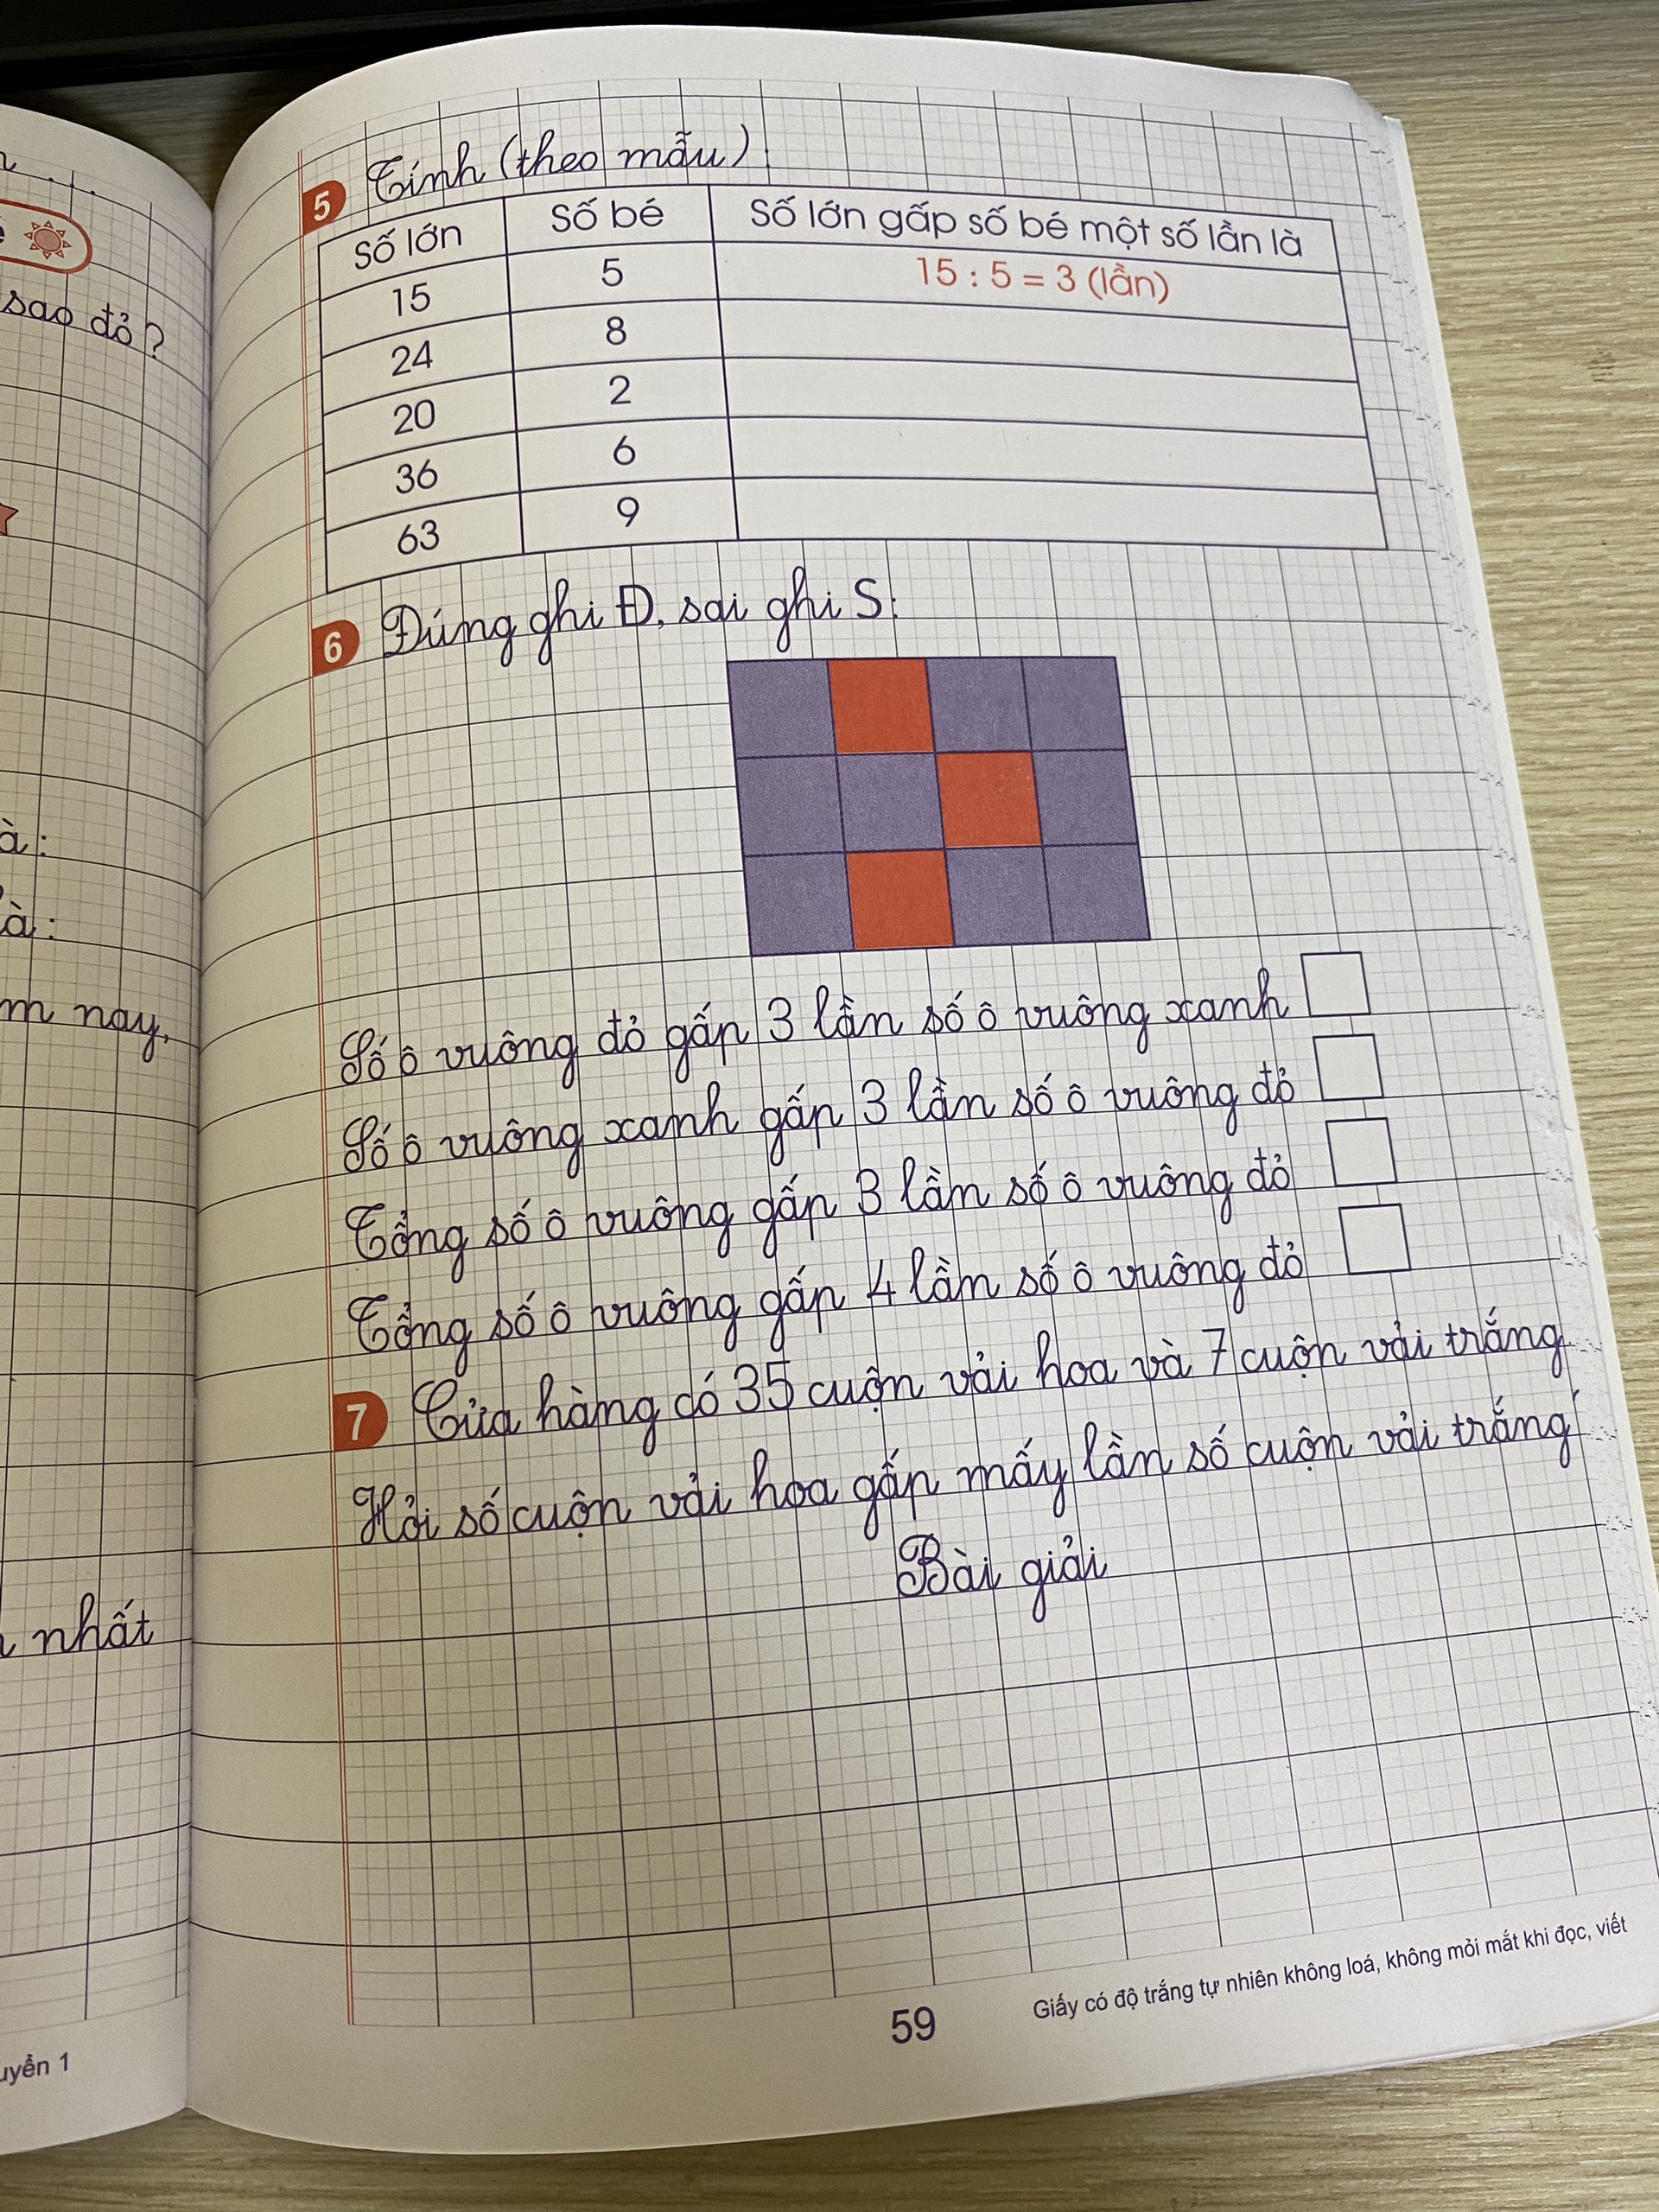 sao đỏ ?
à :
à :
m nay,
nhất
uyển 1
5 Tính (theo mẫu) :
Số lớn Số bé Số lớn gấp số bé một số lần là
15 5 15 : 5 = 3 (lần)
24 8
20 2
36 6
63 9
6 Đúng ghi Đ, sai ghi S:
Số ô vuông đỏ gấp 3 lần số ô vuông xanh
Số ô vuông xanh gấp 3 lần số ô vuông đỏ
Tổng số ô vuông gấp 3 lần số ô vuông đỏ
Tổng số ô vuông gấp 4 lần số ô vuông đỏ
7 Cửa hàng có 35 cuộn vải hoa và 7 cuộn vải trắng
Hỏi số cuộn vải hoa gấp mấy lần số cuộn vải trắng
Bài giải
59
Giấy có độ trắng tự nhiên không loá, không mỏi mắt khi đọc, viết